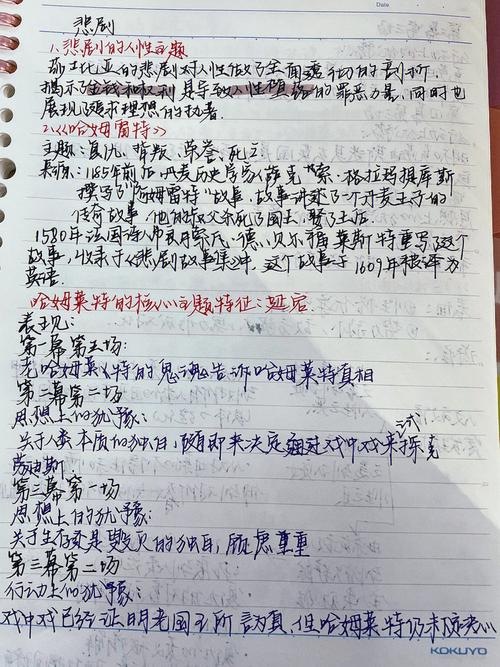 Date
悲剧
1.悲剧的人性主题
莎士比亚的悲剧对人性做了全面透彻的剖析,
揭示了金钱和权利是导致人性堕落的罪恶力量,同时也
展现了追求理想的执着.
2.《哈姆雷特》
主题:复仇、背叛、荣誉、死亡
来源:1185年前后,丹麦历史学家萨克索·格拉玛提库斯
撰写了"哈姆雷特"故事,故事讲述了一个丹麦王子的
传奇故事,他的叔父杀死了国王,娶了王后.
1580年法国诗人弗朗索瓦·德·贝尔福莱斯特重写了这个
故事,收录于《悲剧故事集》中,这个故事于1609年被译为
英语.
哈姆莱特的核心主题特征:延宕
表现:
第一幕第五场:
老哈姆莱特的鬼魂告诉哈姆莱特真相
第二幕第二场
思想上的犹豫:
关于人类本质的独白,随即来决定通过戏中戏来探试克
劳迪斯
第三幕第一场
思想上的犹豫:
关于生存还是毁灭的独白,顾虑重重
第三幕第二场
行动上的犹豫:
戏中戏已经证明老国王所言为真,但哈姆莱特仍未痛下决心
KOKUYO